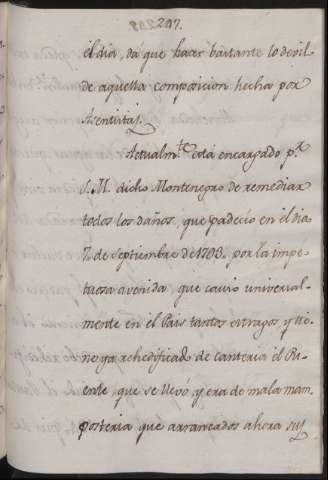 247.
el dia, da que hacer bastante lo devil
de aquella composicion hecha por
Asentistas.
Actualmte. está encargado pr.
S. M. dicho Montenegro de remediar
todos los daños, que padecio en el dia
7. de septiembre de 1793. por la impe-
tuosa avenida, que causo universal-
mente en el Pais tantos estragos, y tie-
ne ya rehedificado de canteria el Pu-
ente, que se llevó, y era de mala mam-
posteria que arrancados ahora sus